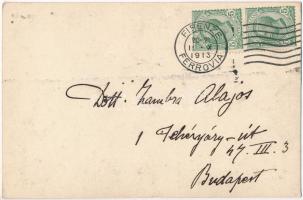 FIRENZE
1913
FERROVIA
Dott. Zambra Alajos
1 Fehérváry-út
47. III. 3
Budapest